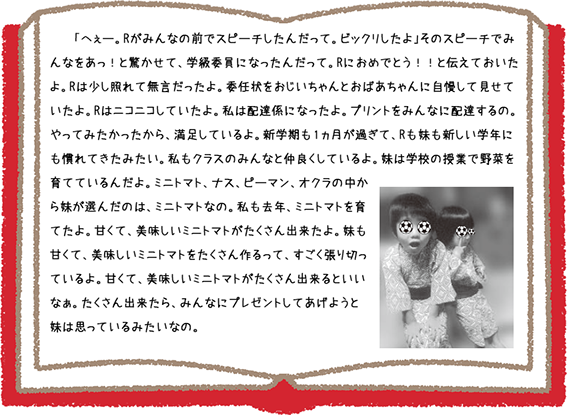 「へぇー。Rがみんなの前でスピーチしたんだって。ビックリしたよ」そのスピーチでみ
んなをあっ！と驚かせて、学級委員になったんだって。Rにおめでとう！！と伝えておいた
よ。Rは少し照れて無言だったよ。委任状をおじいちゃんとおばあちゃんに自慢して見せて
いたよ。Rはニコニコしていたよ。私は配達係になったよ。プリントをみんなに配達するの。
やってみたかったから、満足しているよ。新学期も1ヵ月が過ぎて、Rも妹も新しい学年に
も慣れてきたみたい。私もクラスのみんなと仲良くしているよ。妹は学校の授業で野菜を
育てているんだよ。ミニトマト、ナス、ピーマン、オクラの中か
ら妹が選んだのは、ミニトマトなの。私も去年、ミニトマトを育
てたよ。甘くて、美味しいミニトマトがたくさん出来たよ。妹も
甘くて、美味しいミニトマトをたくさん作るって、すごく張り切っ
ているよ。甘くて、美味しいミニトマトがたくさん出来るといい
なぁ。たくさん出来たら、みんなにプレゼントしてあげようと
妹は思っているみたいなの。